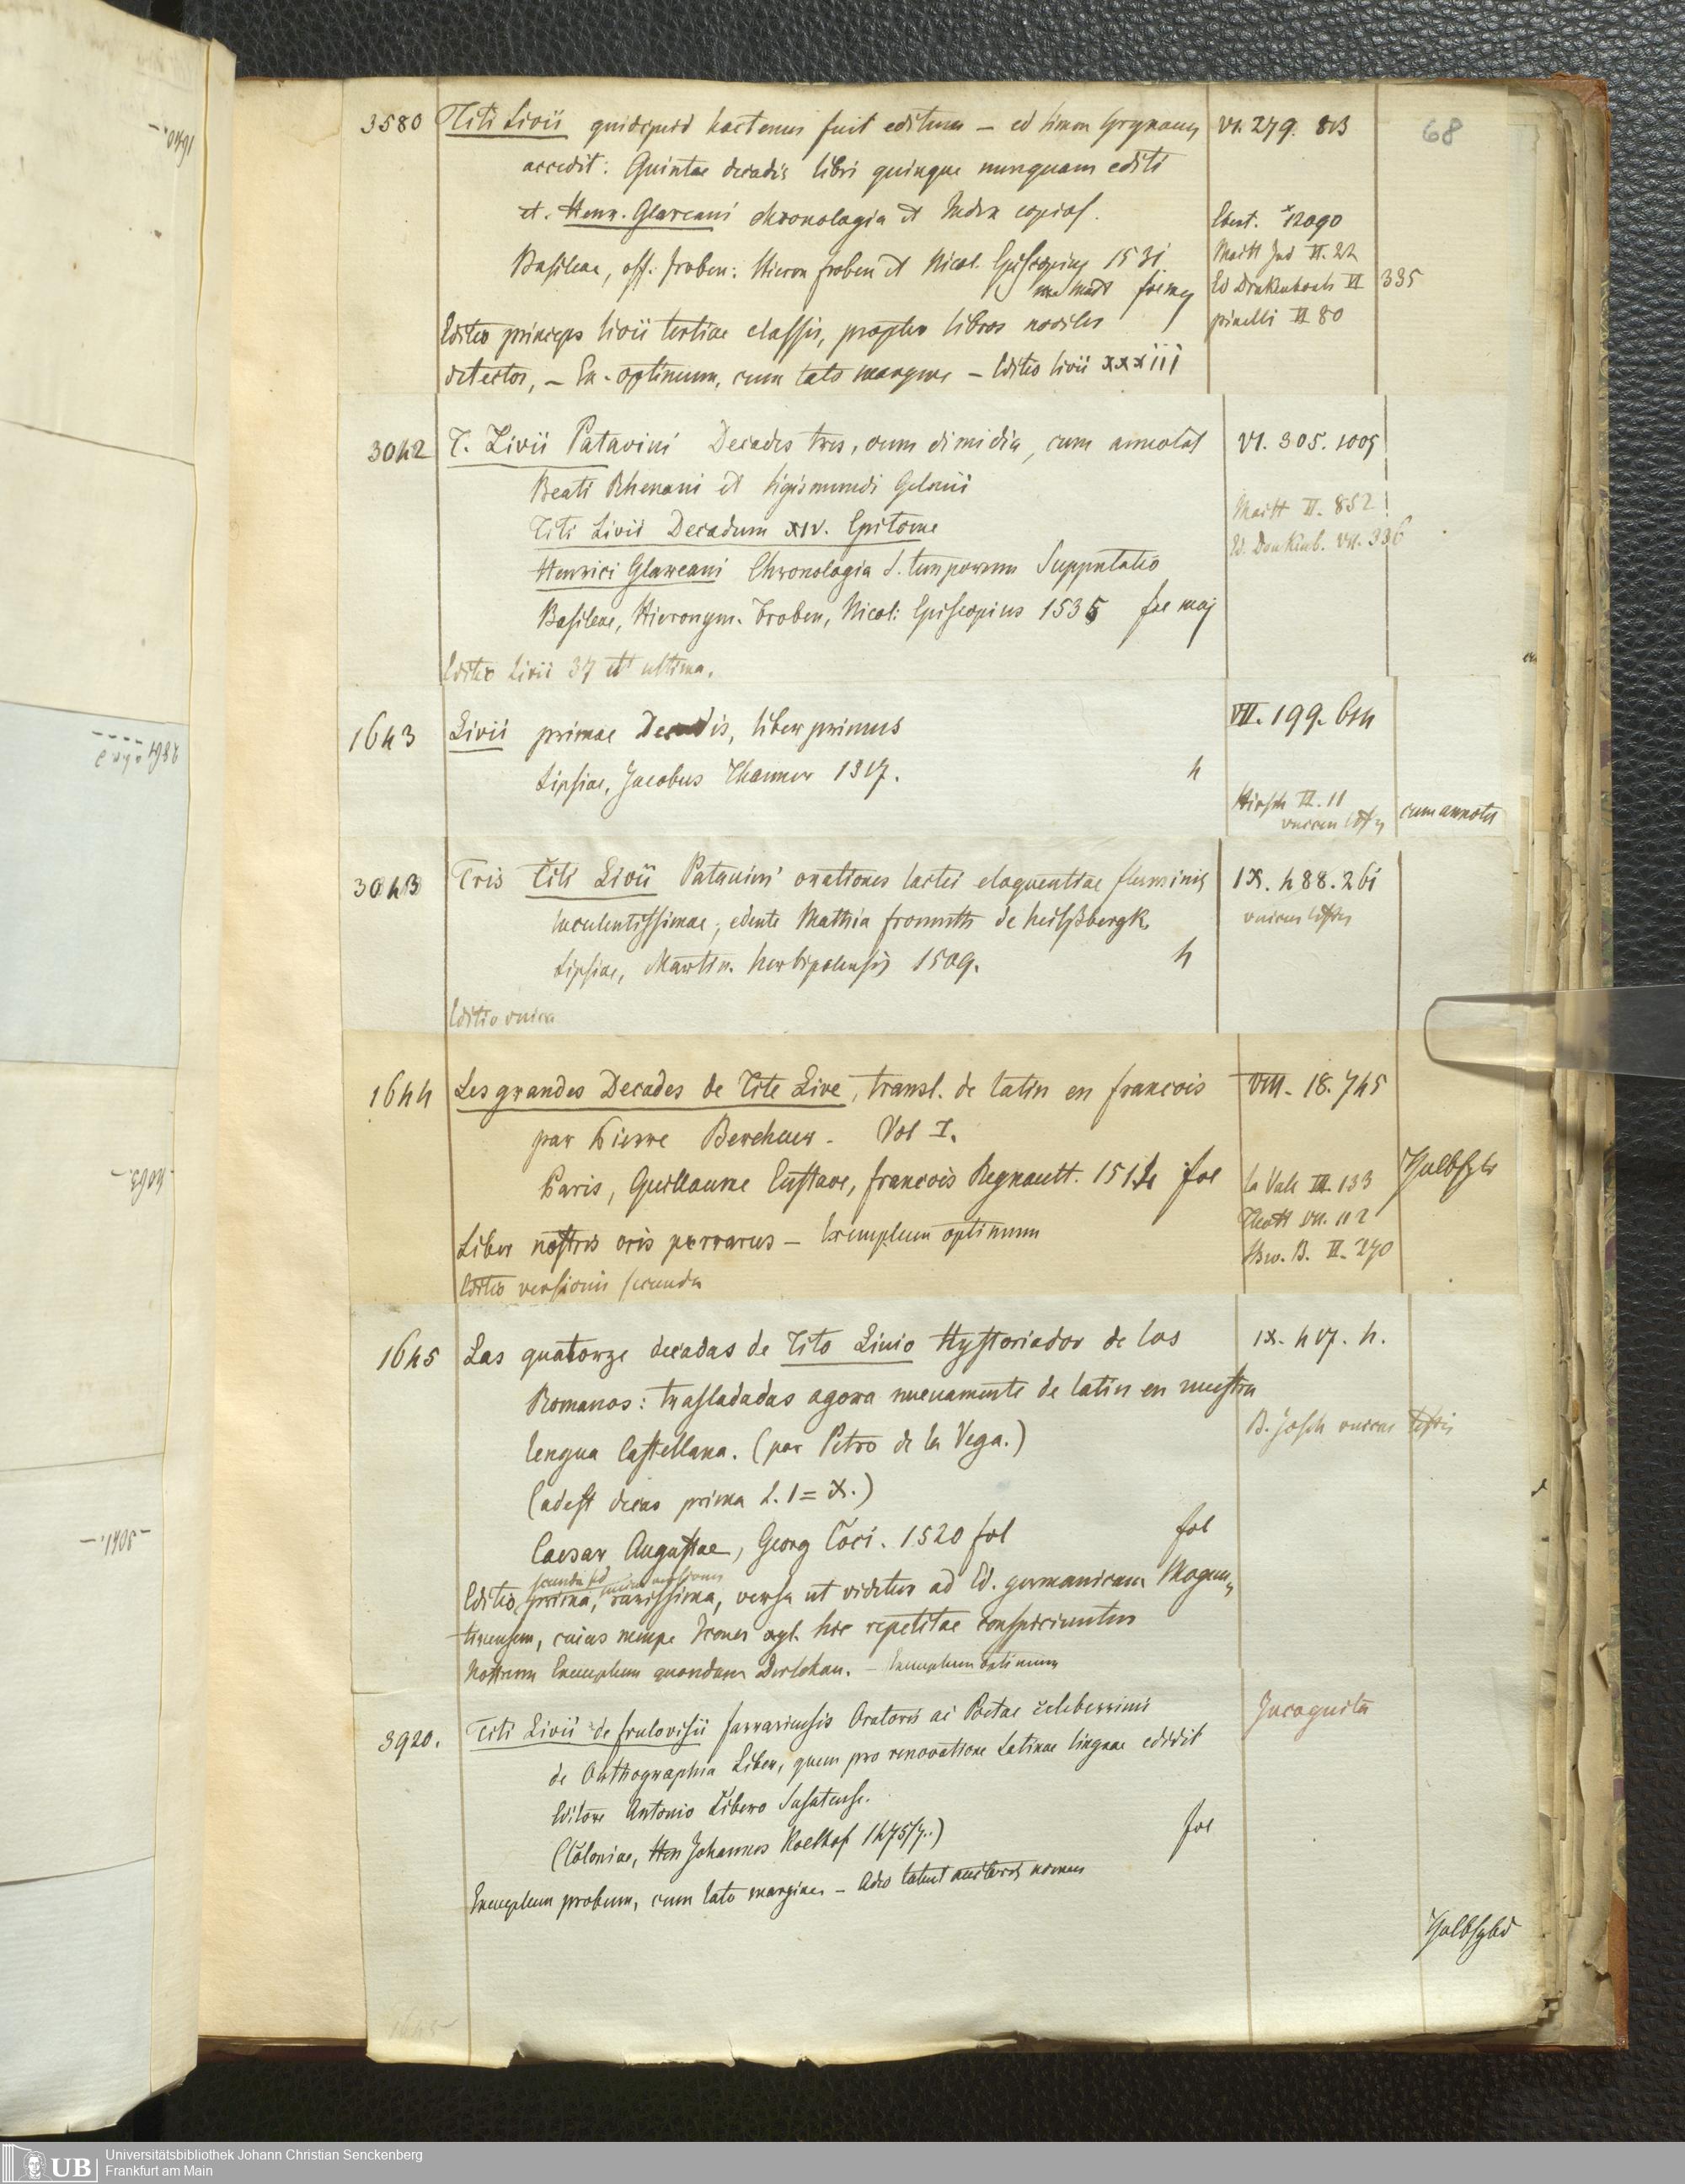 68
3580 Titi Livii quidquid hactenus fuit editum – ed Simon Grynaeus VI. 279. 813
accedit: Quintae decadis libri quinque nunquam editi
et. Henr. Glareani chronologia et Index copios.
Basileae, off. froben: Hieron froben et Nicol. Episcopius 1531
fol maj
Ebert. *12090
Maitt Ind II. 22
Ed Drakenborch VI 335
pinelli II 80
Editio princeps livii tertiae classis, propter libros noviter
detectos, – Ex. optimum, cum lato margine – Editio livii xxxiii
3042 T. Livii Patavini Decades tres, cum dimidia, cum annotat VI. 305. 1005
Beati Rhenani et Sigismundi Gelenii
Titi Livii Decadum XIV. Epitome
Henrici Glareani Chronologia S. temporum Supputatio
Basileae, Hieronym. Froben, Nicol: Episcopius 1535 fol maj
Maitt II. 852
Ed. Drakenb. VII. 336
Editio Livii 37 et ultima.
1643 Livii primae Decadis, liber primus VII. 199. 614
Lipsiae, Jacobus Thanner 1517. 4
Hirsch II. 11
cum annotat
3043 Tris Titi Livii Patauini orationes lactei eloquentiae fluminis IX. 488. 261
luculentissimae, edente Mathia fromuth de heilsbergk
Lipsiae, Martin. herbipolensis 1509. 4
Editio unica
1644 Les grandes Decades de Tite Live, transl. de latin en francois VIII. 18. 745
par Pierre Bercheur. Vol I.
Paris, Guillaume Eustave, francois Regnault. 1514 fol
la Vall III. 133
Thott VII. 112
Liber nostris oris perrarus – Exemplum optimum
Editio versionis secunda
1645 Las quatorze decadas de Tito Liuio Hystoriador de los IX. 417. 4.
Romanos: trasladadas agora nueuamente de latin en nuestra
lengua Castellana. (por Petro de la Vega.)
(adest decas prima L. I = X.)
Caesar Augustae, Georg Coci. 1520 fol fol
Editio prima, rarissima, versa ut videtur ad Ed. germanicam Mogun
tinensem, cuius nempe Icones xyl. hic repetitae conspiciuntur
Nostrum Exemplum quondam – Exemplum optimum
3920. Titi Livii de frulovisii farrariensis Oratoris ac Poetae celeberrimi Incognita
de Orthographia Liber, quem pro renovatione Latinae linguae edidit
Editore Antonio Libero Susatense.
(Coloniae, Johannes Koelhof 1475/7.) fol
Exemplum probum, cum lato margine. – Adeo latuit auctoris nomen
1645
UB
Universitätsbibliothek Johann Christian Senckenberg
Frankfurt am Main